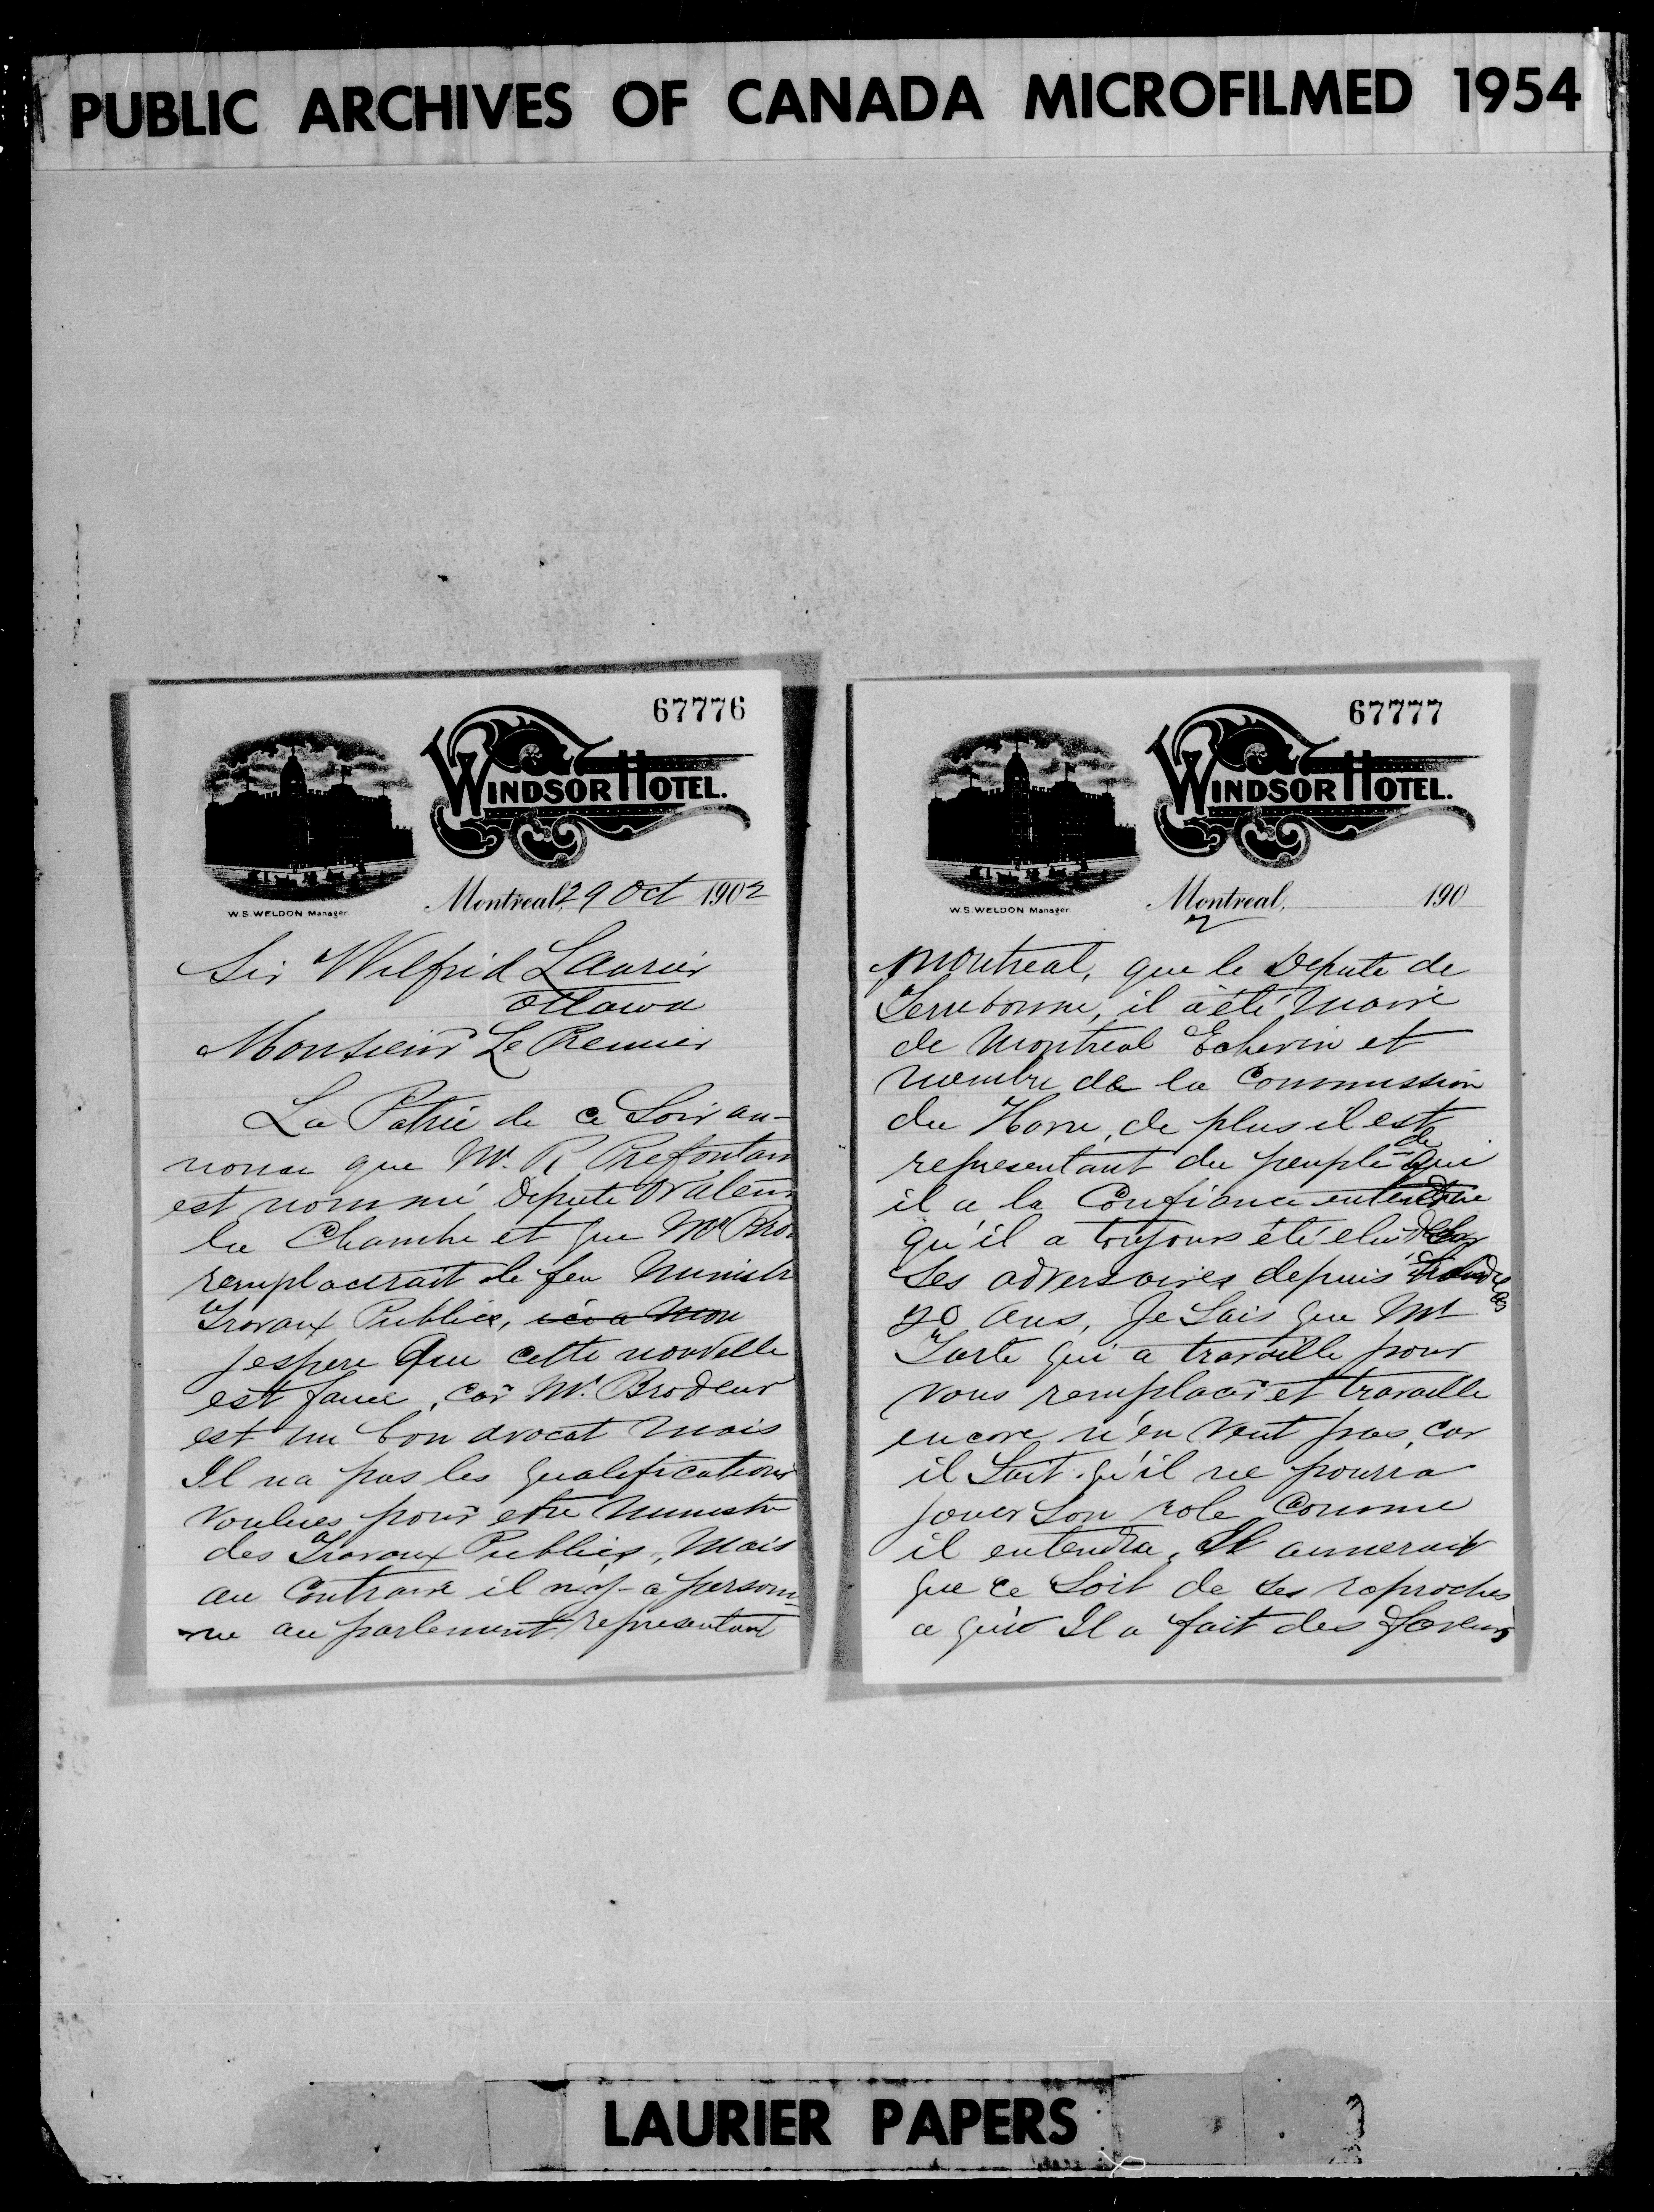 PUBLIC ARCHIVES OF CANADA MICROFILMED 1954
67776
WINDSOR HOTEL.
W.S. WELDON Manager.
Montreal, 29 Oct 1902
Sir Wilfrid Laurier
Ottawa
Monsieur Le Premier
La Patrie de ce Soir an-
nonce que Mr. R Prefontain
est nommé Depute
la Chambre et que Mr Bro
remplacerait le feu Ministr
Travaux Publics, ici a mon
jespere Que cette nouvelle
est fauce, car Mr. Brodeur
est un bon avocat mais
Il na pas les qualifications
voulues pour etre Ministre
des Travaux Publics, Mais
au Contraire il n'y a person-
ne au parlement representant
67777
WINDSOR HOTEL.
W.S. WELDON Manager.
Montreal, 190
2
Montreal, que le Depute de
Terrebonne, il a été Maire
de Montreal Echevin et
membre de la Commission
du Havre, de plus il est
representant du peuple de Qui
il a la Confiance
qu'il a toujours été elu
Ses adversaires depuis
20 ans, Je Sais que Mr
Tarte qui a travaille pour
vous remplacer et travaille
encore n'en veut pas, car
il Sait qu'il ne pourra
jouer Son role Comme
il entendra, Il aimerait
que ce Soit de Ses reproches
a qui Il a fait des faveurs
LAURIER PAPERS